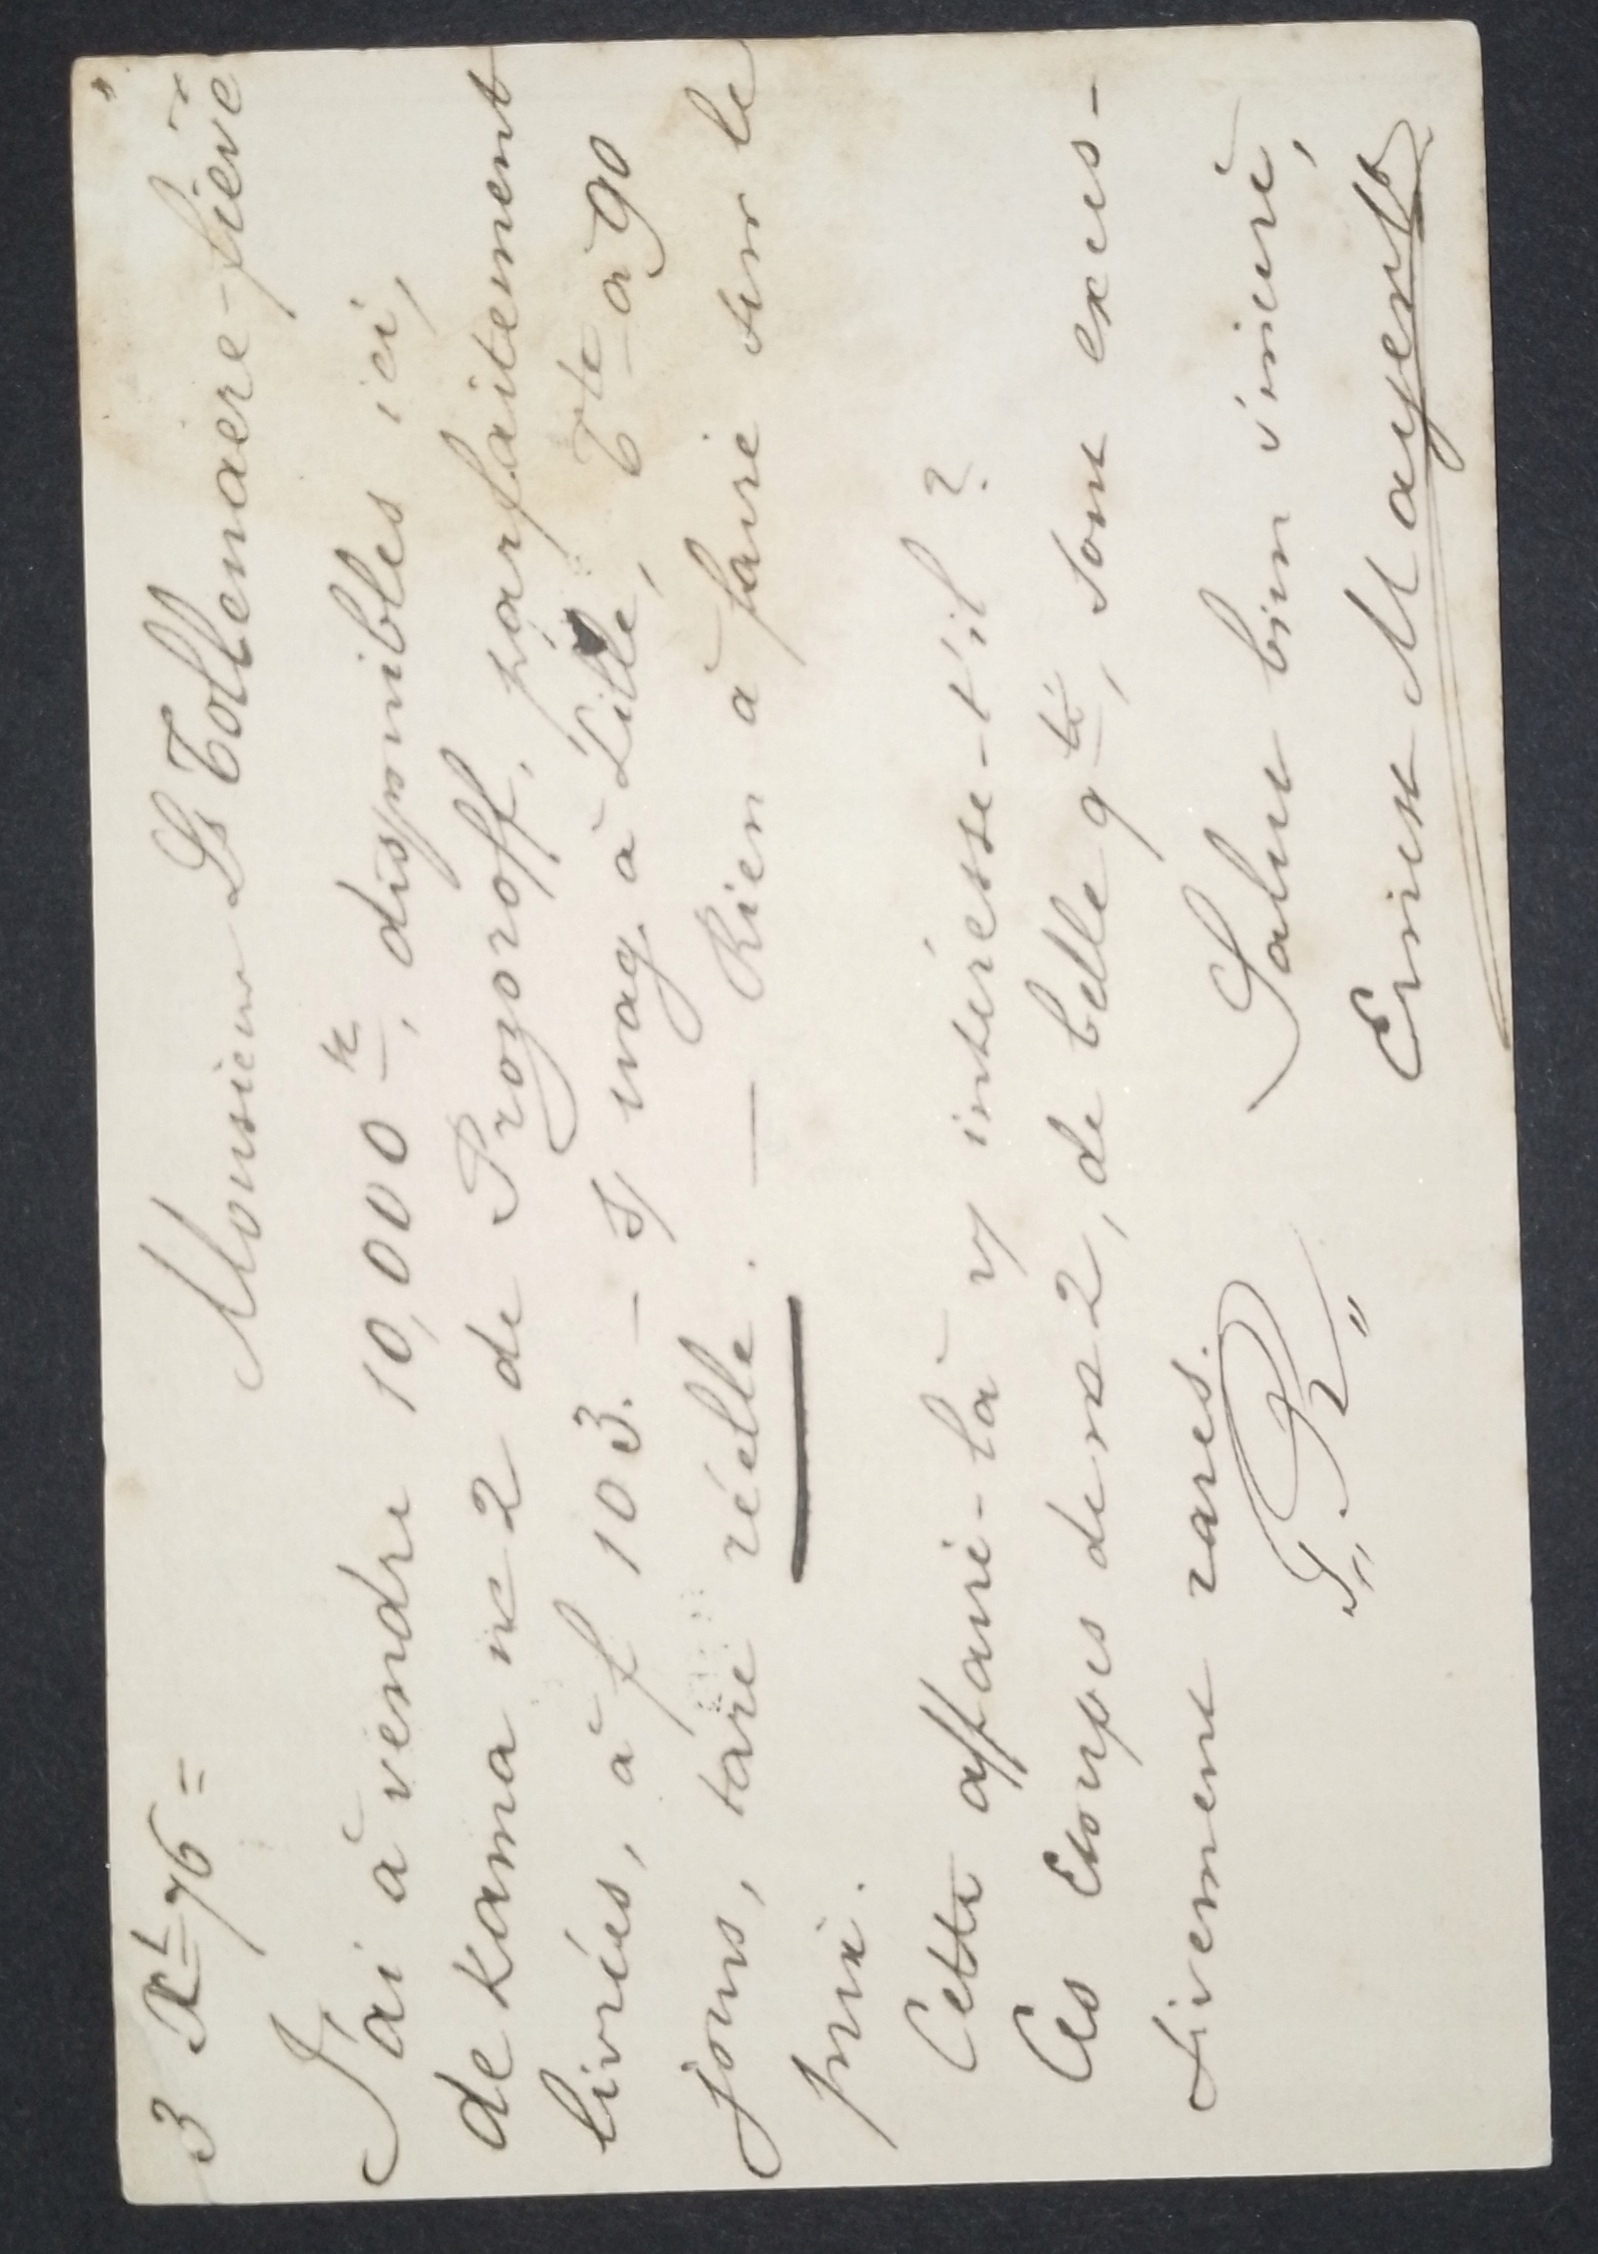 3 Xb 76 =
Monsieur Ls Tollenaere-fiévé"
J'ai à vendre 10,000 k, disponibles ici,
de Kama no 2 de Prozoroff, parfaitement
livrées, à f 103. - s/ wag. à Lille, Tte à 90
jours, tare réelle. — Rien à faire sur le
prix.
Cette affaire-là vs intéresse-t'il ?
Ces Etoupes de no 2, de belle qté, sont exces-
sivement rares.
Salut bien sincère,
"T. R"
Ernest Mayentt